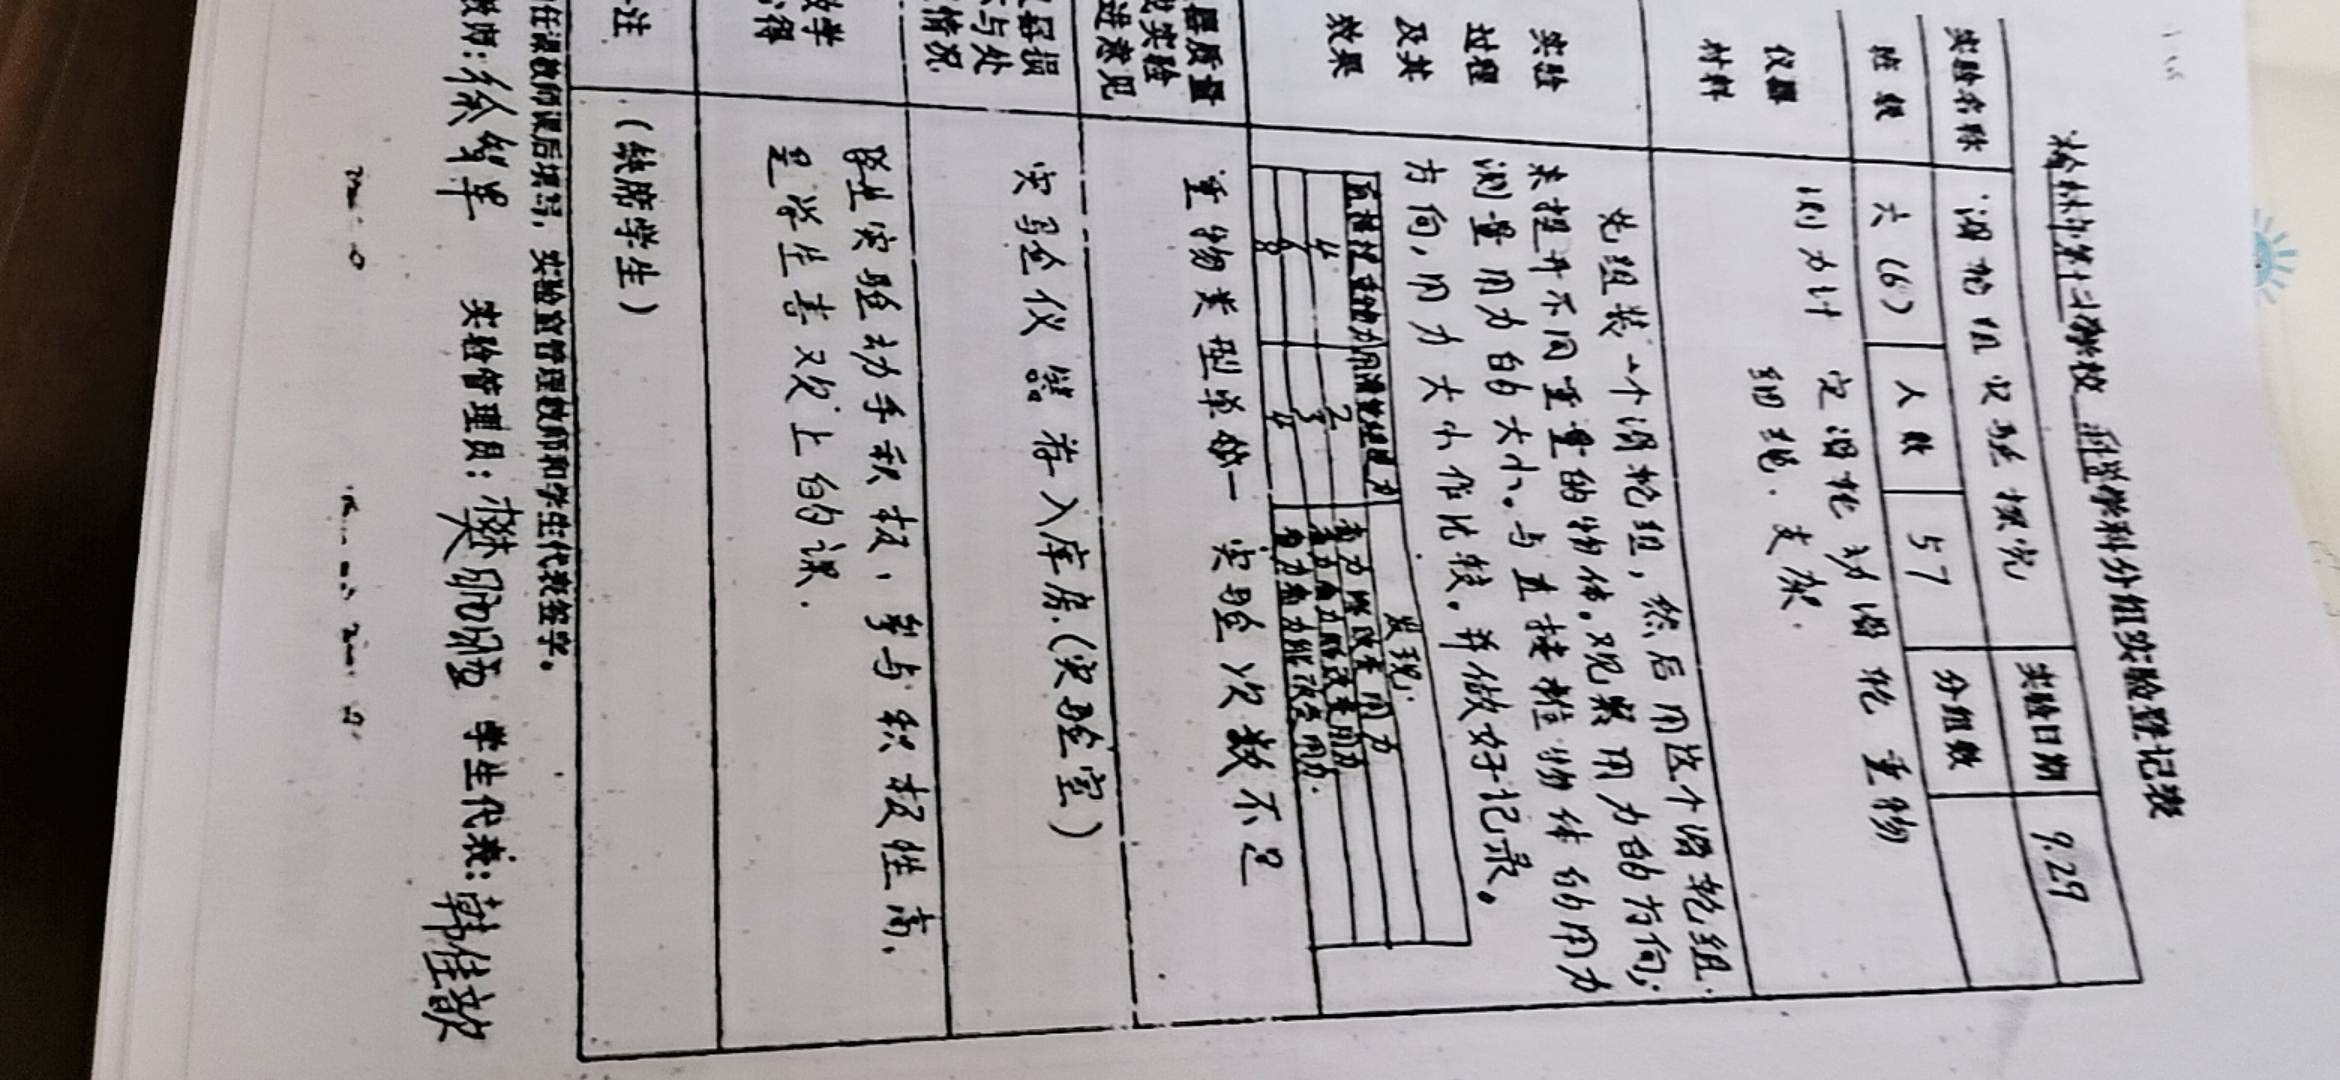 榆林市第十二学校 科学学科分组实验登记表
实验名称 滑轮组实验探究 实验日期 9.29
班级 六(6) 人数 57 分组数
仪器
材料
测力计 定滑轮 动滑轮 重物
细绳. 支架.
实验
过程
及其
效果
先组装一个滑轮组,然后用这个滑轮组.
来提升不同重量的物体。观察用力的方向;
测量用力的大小。与直接提物体的用力
方向,用力大小作比较。并做好记录。
直接提重物力 用滑轮组提力 发现:
4 2 省力 能改变用力
6 3 省力 省力能改变用力
8 4 省力 能改变用力.
器质量
实验
进意见
重物类型单一 实验次数不足
器损
与处
情况
实验仪器存入库房.(实验室)
教学
得
学生实验动手积极,参与积极性高.
是学生喜欢上的课.
注
(缺席学生)
任课教师课后填写,实验室管理教师和学生代表签字。
教师: 实验管理员: 学生代表: 韩佳歆